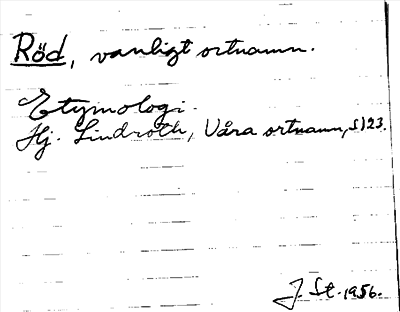 Röd, vanligt ortnamn.
Etymologi.
Hj. Lindroth, Våra ortnamn, s 123.
J. St. 1956.